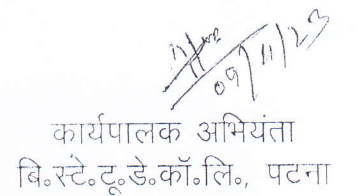 09/11/23
कार्यपालक अभियंता
बि॰स्टे॰टू॰डे॰कॉ॰लि॰, पटना